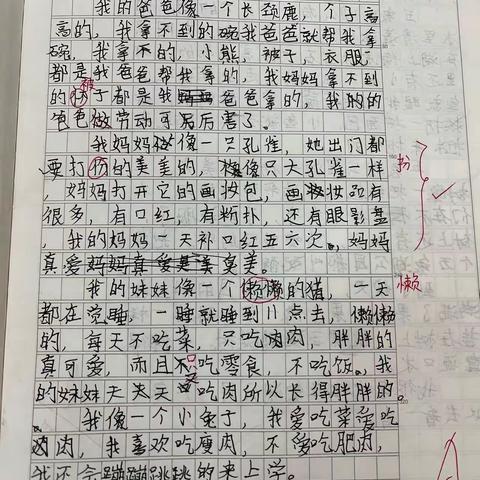 我的爸爸像一个长颈鹿，个子高
高的，我拿不到的碗我爸爸就帮我拿
碗，我拿不的，小熊，被子，衣服，
都是我爸爸帮我拿的，我妈妈拿不到
的被子都是我爸爸拿的，我的的
爸爸做劳动可厉害了。
我妈妈像一只孔雀，她出门都
要打伤的美美的，像只大孔雀一样
扮
，妈妈打开它的画妆包，画妆妆品有
很多，有口红，有粉扑，还有眼影盘
，我的妈妈一天补口红五六次。妈妈
真爱臭美。
我的妹妹像一个懒懒的猫，一天
懒
都在觉睡，一睡就睡到11点去，懒懒
的，每天不吃菜，只吃肉肉，胖胖的
真可爱，而且只吃零食，不吃饭。我
的妹妹天天天吃肉所以长得胖胖的。
我像一个小兔子，我爱吃菜爱吃
肉肉，我喜欢吃瘦肉，不爱吃肥肉，
我还会蹦蹦跳跳的来上学。